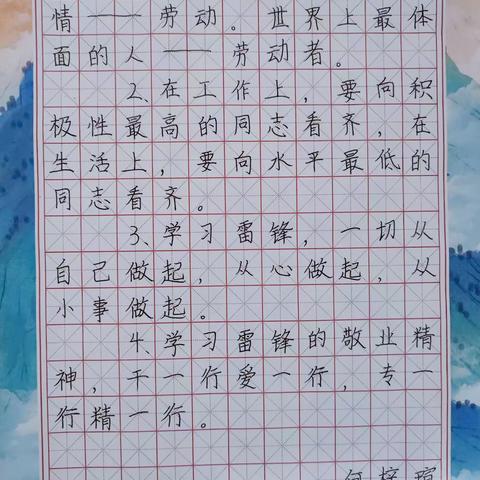 情——劳动。世界上最体
面的人——劳动者。
2、在工作上，要向积
极性最高的同志看齐，在
生活上，要向水平最低的
同志看齐。
3、学习雷锋，一切从
自己做起，从心做起，从
小事做起。
4、学习雷锋的敬业精
神，干一行爱一行，专一
行精一行。